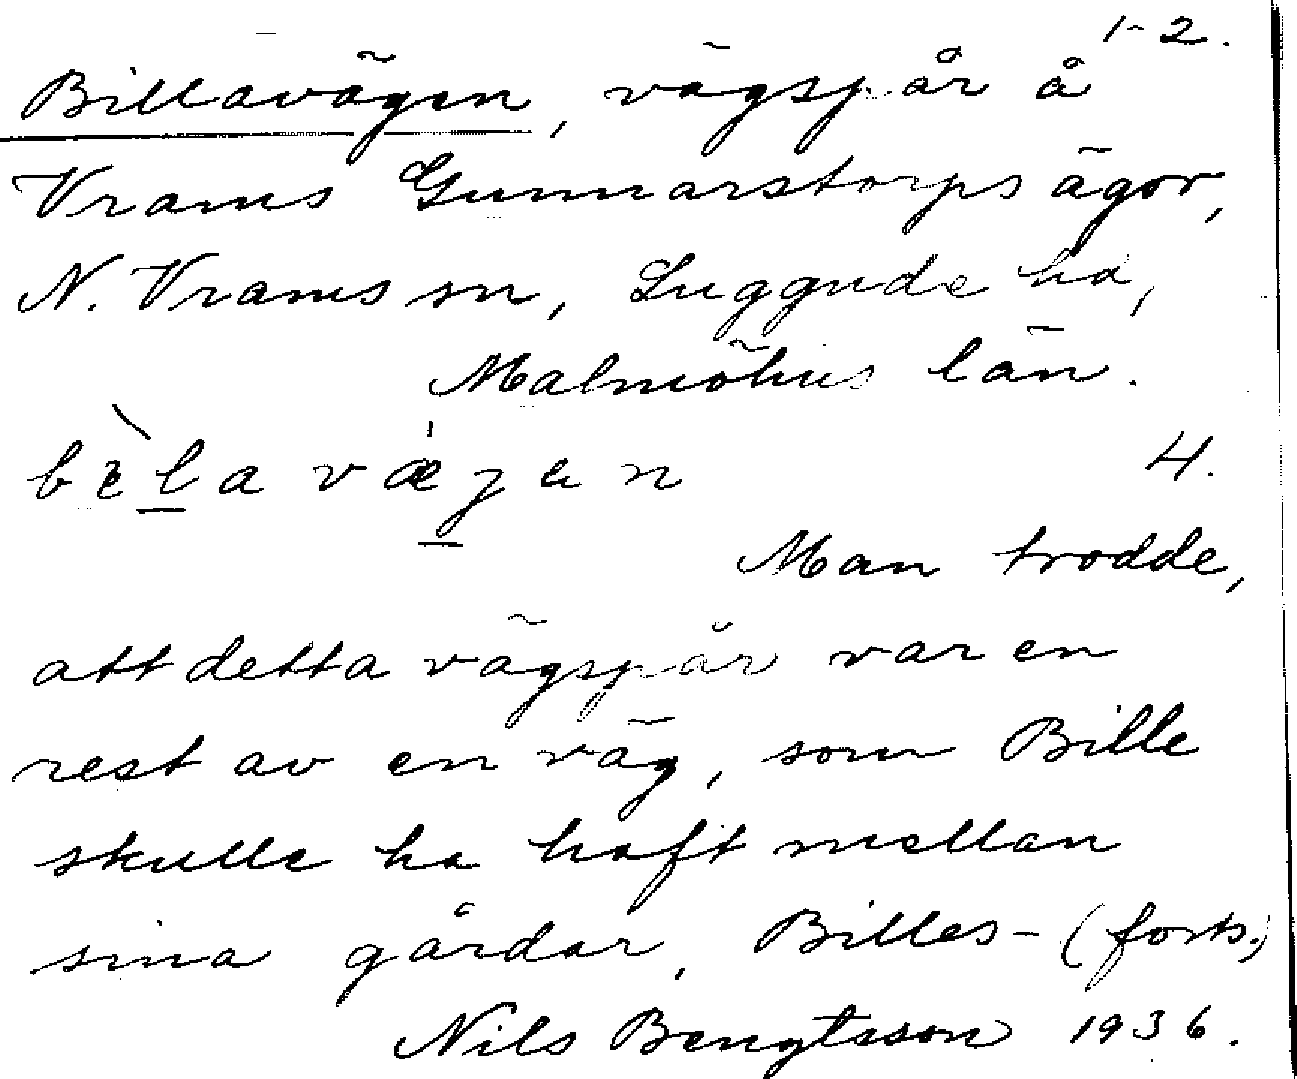 1-2.
Billavägen, vägspår å
Vrams Gunnarstorps ägor,
N. Vrams sn, Luggude hd,
Malmöhus län.
bèla væjen 4.
Man trodde,
att detta vägspår var en
rest av en väg, som Bille
skulle ha haft mellan
sina gårdar, Billes- (forts.)
Nils Bengtsson 1936.